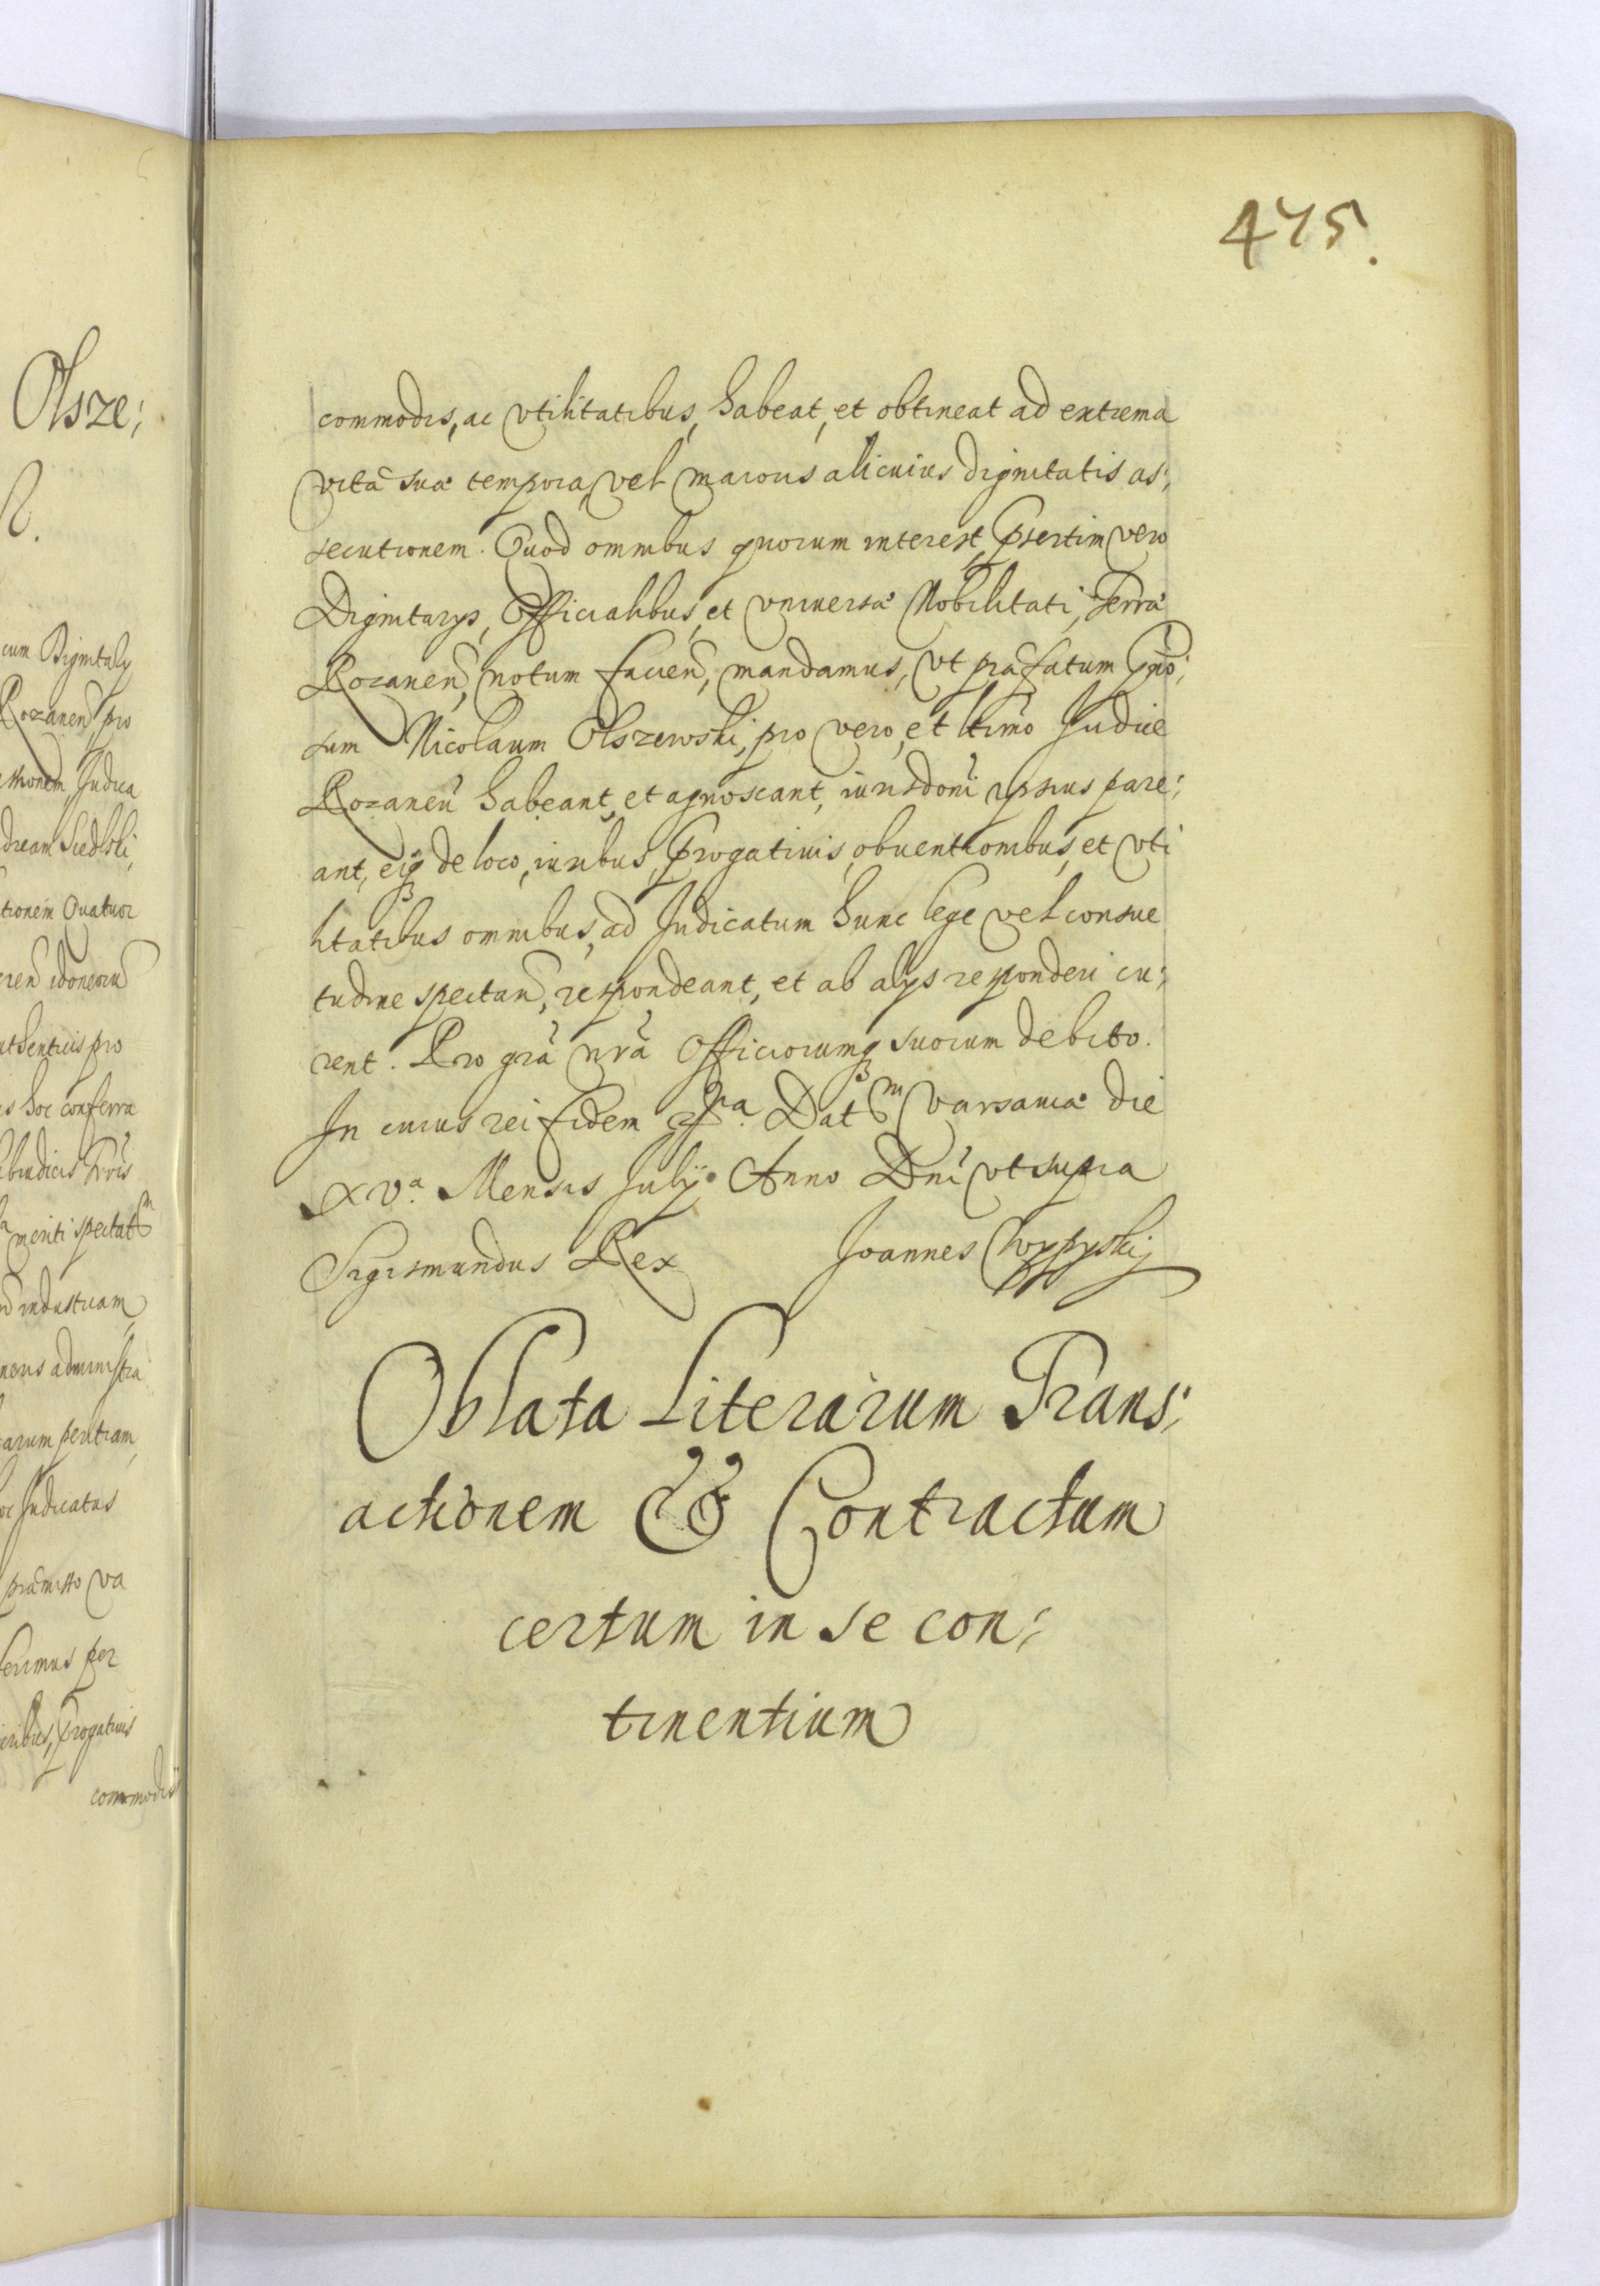 Olsze;
cum Dignitaly
Rozanen, pro
Judica
Siedlski,
tionem Quatuor
idoneum
pro
hoc conferra
meriti spectat
industriam
administra
peritiam,
Judicatus
præmisso va
ferimus per
commodis
475.
commodis, ac vtilitatibus, habeat, et obtineat ad extrema
vitæ suæ tempora, vel maioris alicuius dignitatis as;
secutionem. Quod omnibus quorum interest, Psertim vero
Dignitarys, Officialibus, et vniuersæ Nobilitati, Terræ
Rozanen, notum facien, mandamus, vt præfatum Gñro;
sum Nicolaum Olszewski, pro vero, et ltimo Judice
Rozanen habeant, et agnoscant, iurisdoni ipsius pare;
ant, eiq de loco, iuribus, Progatiuis, obuentionibus, et vti
litatibus omnibus, ad Judicatum hunc lege vel consue
tudine spectan, respondeant, et ab alys responderi cu;
rent. Pro gra nra Officiorumq suorum debito.
In cuius rei fidem Dat m Varsauiæ die
xv.a Mensis Julÿ Anno Dni vt supra
Sigismundus Rex Joannes
Oblata Literarum Trans;
actionem & Contractum
certum in se con;
tinentium